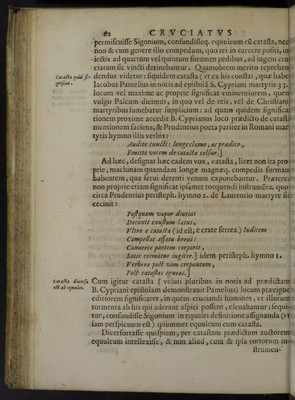 62 CRVCIATVS
permiscuisse Sigonium, confundisseq; equuleum cū catasta, nec
non & cum genere illo compedum, quo rei in carcere positi, in-
iectis ad quartum vel quintum foramen pedibus, ad iugem cru
ciatum sic vincti detinebantur. Quamobrem merito reprehen
dendus videtur: siquidem catasta (vt ex his constat, quæ habet
Iacobus Pamelius in notis ad epistolā S. Cypriani martyris 33.
locum vel maxime ac proprie significat eminentiorem, quem
vulgo Palcum dicimus, in quo vel de reis, vel de Christianis
martyribus sumebatur supplicium: ad quam quidem significa
tionem proxime accedit B. Cyprianus loco prædicto de catastæ
mentionem faciens, & Prudentius poeta pariter in Romani mar
tyris hymno illis verbis:
Audite cuncti: longe clamo, ac prædico,
Emitto vocem de catasta celsior.]
Ad hæc, designat hæc eadem vox, catasta, licet non ita pro
prie, machinam quamdam longā magnāq; compedis formam
habentem, qua ferui detenti venum exponebantur. Præterea
non proprie etiam significat ipsamet torquendi instrumēta, quo
circa Prudentius peristeph. hymno 2. de Laurentio martyre sic
cecinit:
Postquam vapor diutius
Decoxit exustum latus,
Vltro e catasta (id est, e crate ferrea) Iudicem
Compellat affatu breui:
Conuerte partem corporis,
Satis crematam iugiter.] idem peristeph. hymno 1.
Verbera post vim crepantum,
Post catastas igneas.]
Cum igitur catasta (veluti pluribus in notis ad prædictam
B. Cypriani epistolam demonstrauit Pamelius) locum præcipue
editiorem significaret, in quem cruciandi homines, vt illorum
tormenta ab his qui aderant aspici possent, eleuabantur, sequi-
tur, confundisse Sigonium in equulei definitione assignanda (vt
iam perspicuum est) ipsummet equuleum cum catasta.
Dicet fortasse quispiam, per catastam prædictum auctorem
equuleum intellexisse, & non aliud, cum & ipsa tortorum in-
strumen-
Catasta quid si-
gnificet.
Catasta diuersa
est ab equuleo.